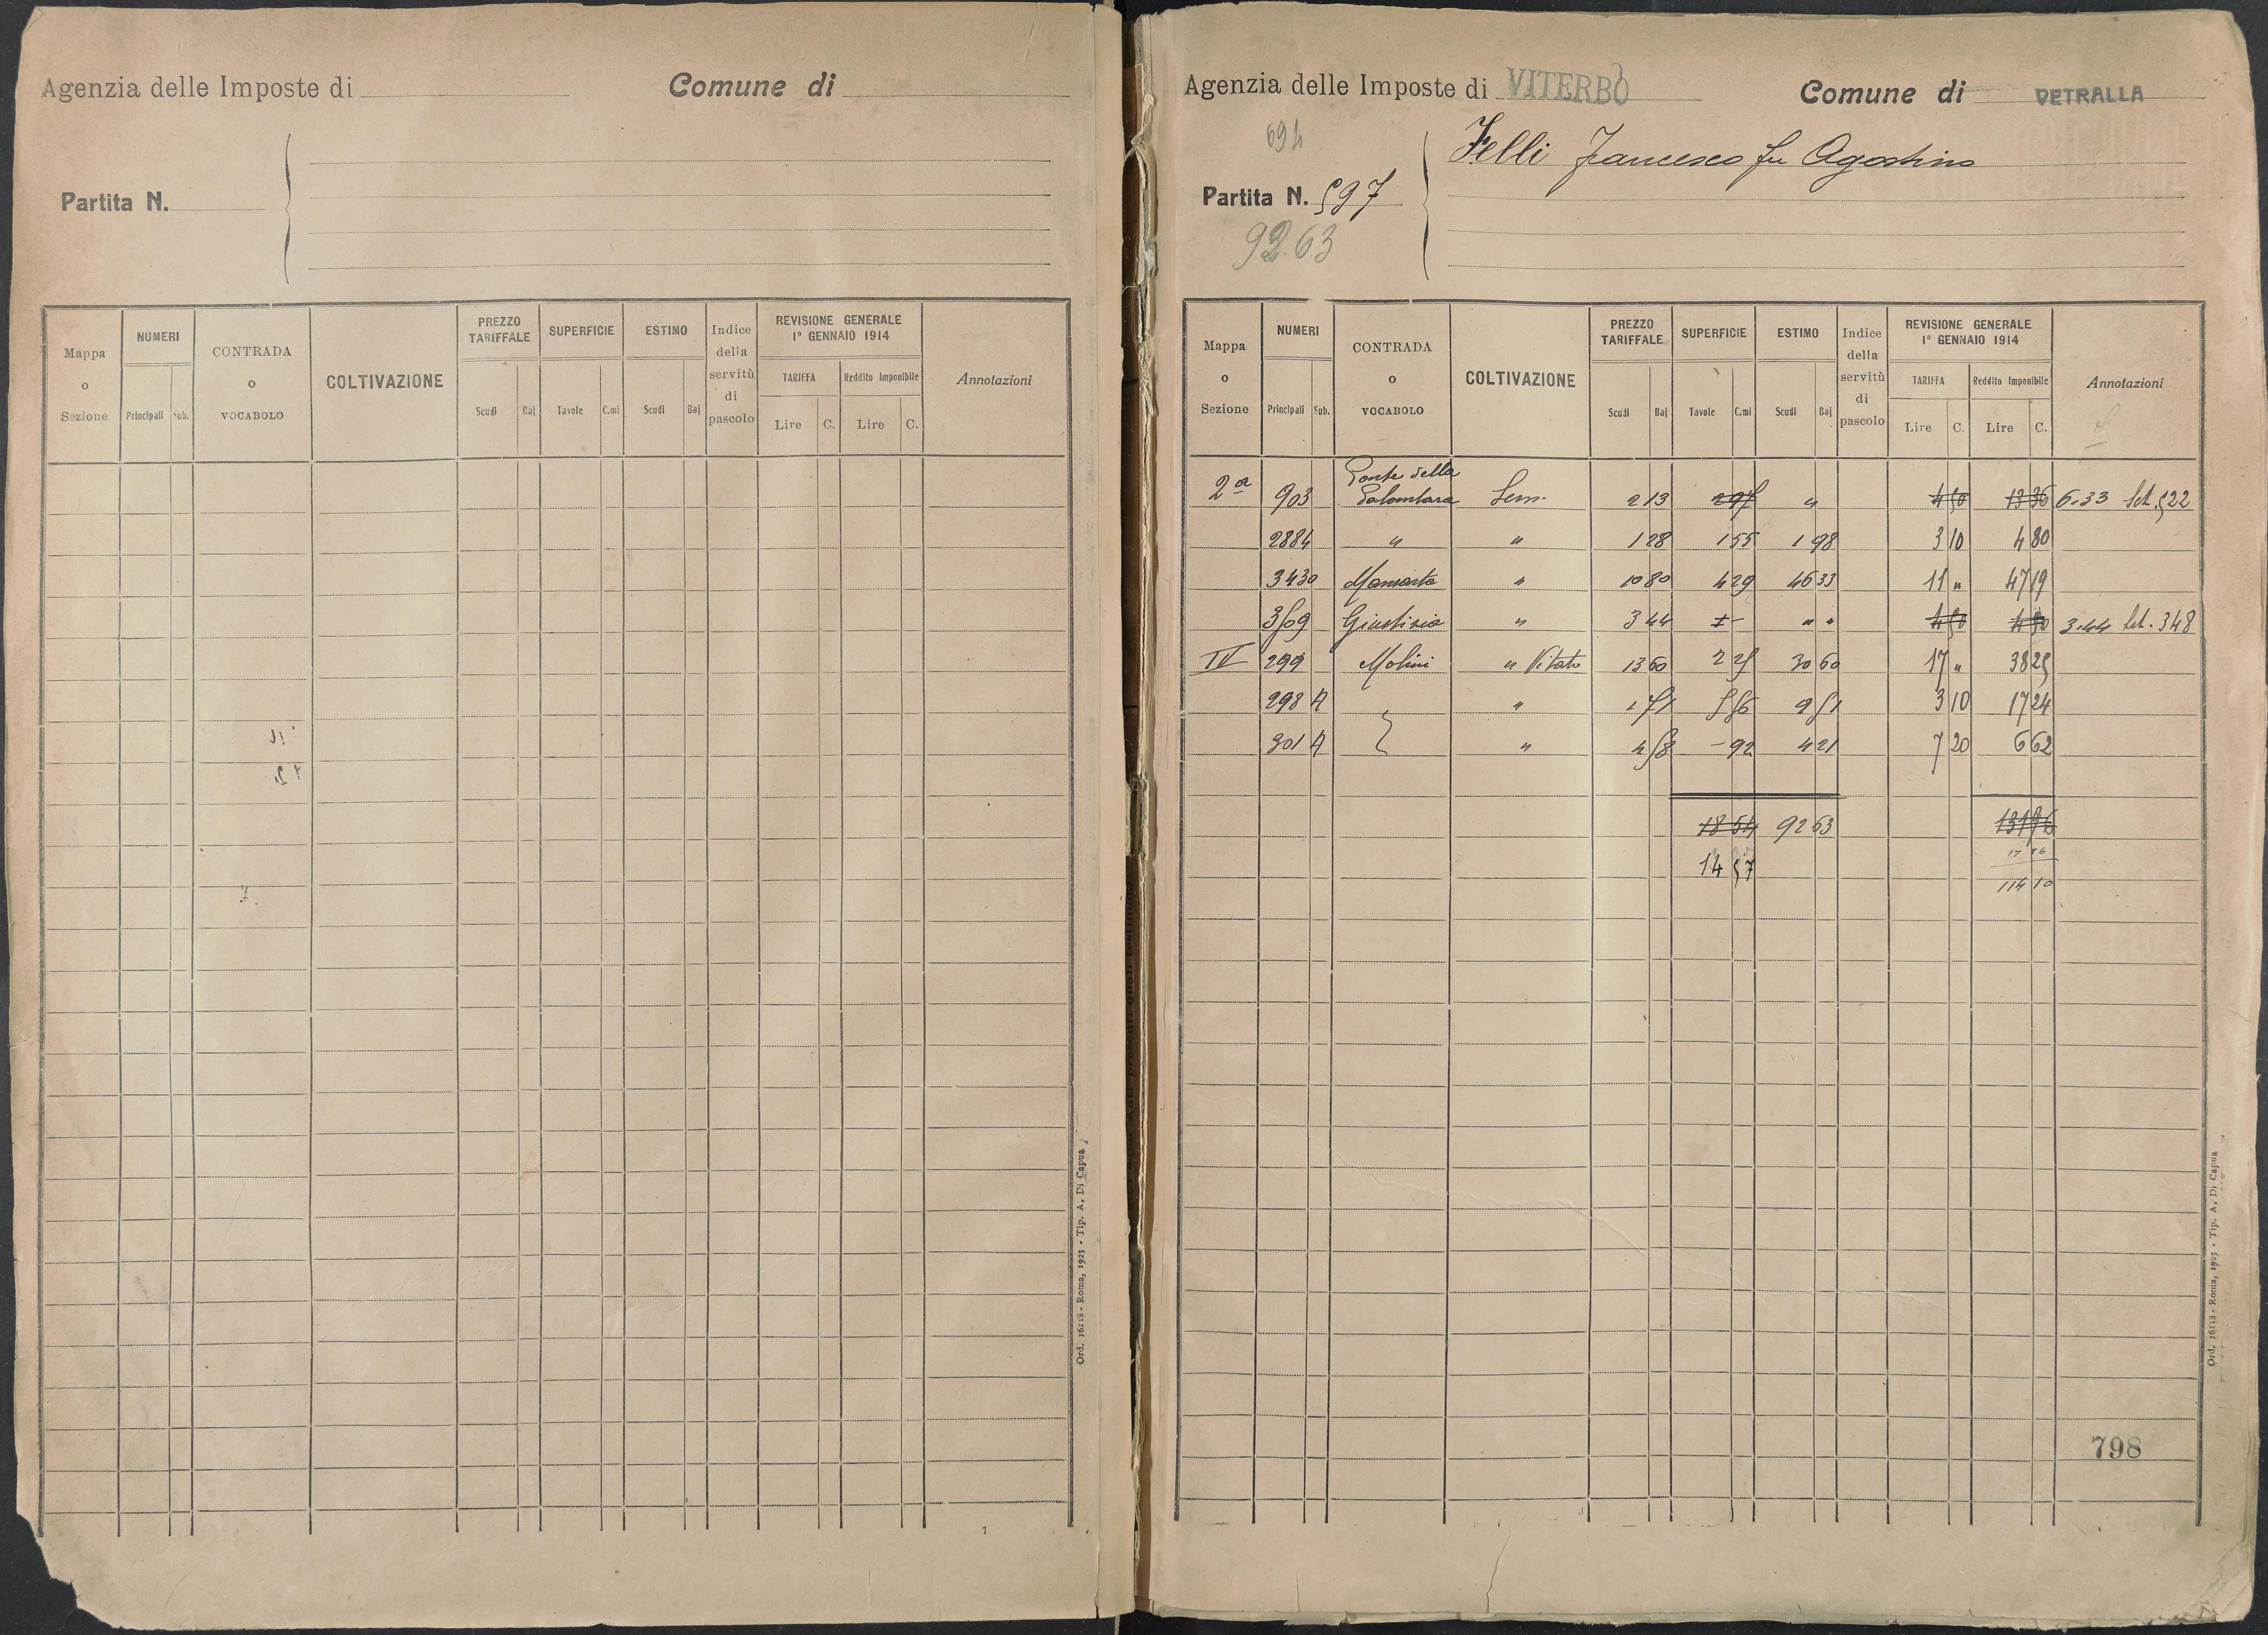 Agenzia delle Imposte di
Comune di
Partita N.
Mappa o Sezione
NUMERI
Principali
Sub.
CONTRADA o VOCABOLO
COLTIVAZIONE
PREZZO TARIFFALE
Scudi
Baj
SUPERFICIE
Tavole
C.mi
ESTIMO
Scudi
Baj
Indice della servitù di pascolo
REVISIONE GENERALE
1° GENNAIO 1914
TARIFFA
Lire
C.
Reddito Imponibile
Lire
C.
Annotazioni
Ord. 16118 - Roma, 1923 - Tip. A. Di Capua
Agenzia delle Imposte di VITERBO
Comune di VETRALLA
694
Partita N. 597
92.63
Felli Francesco fu Agostino
Mappa o Sezione
NUMERI
Principali
Sub.
CONTRADA o VOCABOLO
COLTIVAZIONE
PREZZO TARIFFALE
Scudi
Baj
SUPERFICIE
Tavole
C.mi
ESTIMO
Scudi
Baj
Indice della servitù di pascolo
REVISIONE GENERALE
1° GENNAIO 1914
TARIFFA
Lire
C.
Reddito Imponibile
Lire
C.
Annotazioni
2a 903 Ponte della Palombara Sem. 2 13 297 " 4 50 13 36 6.33 Let. 522
2884 " " 1 28 1 55 1 98 3 10 4 80
3430 " 10 80 4 29 46 33 11 " 47 19
3509 Giustizia " 3 44 1 - " " 4 50 4 50 3.44 Let. 348
IV 299 Molini " Vitato 13 60 2 25 30 60 17 " 38 25
298 A " 1 71 5 56 9 51 3 10 17 24
301 A " 4 58 - 92 4 21 7 20 6 62
18 54 92 63 131 96
17 86
14 57
114 10
798
Ord. 16118 - Roma, 1923 - Tip. A. Di Capua